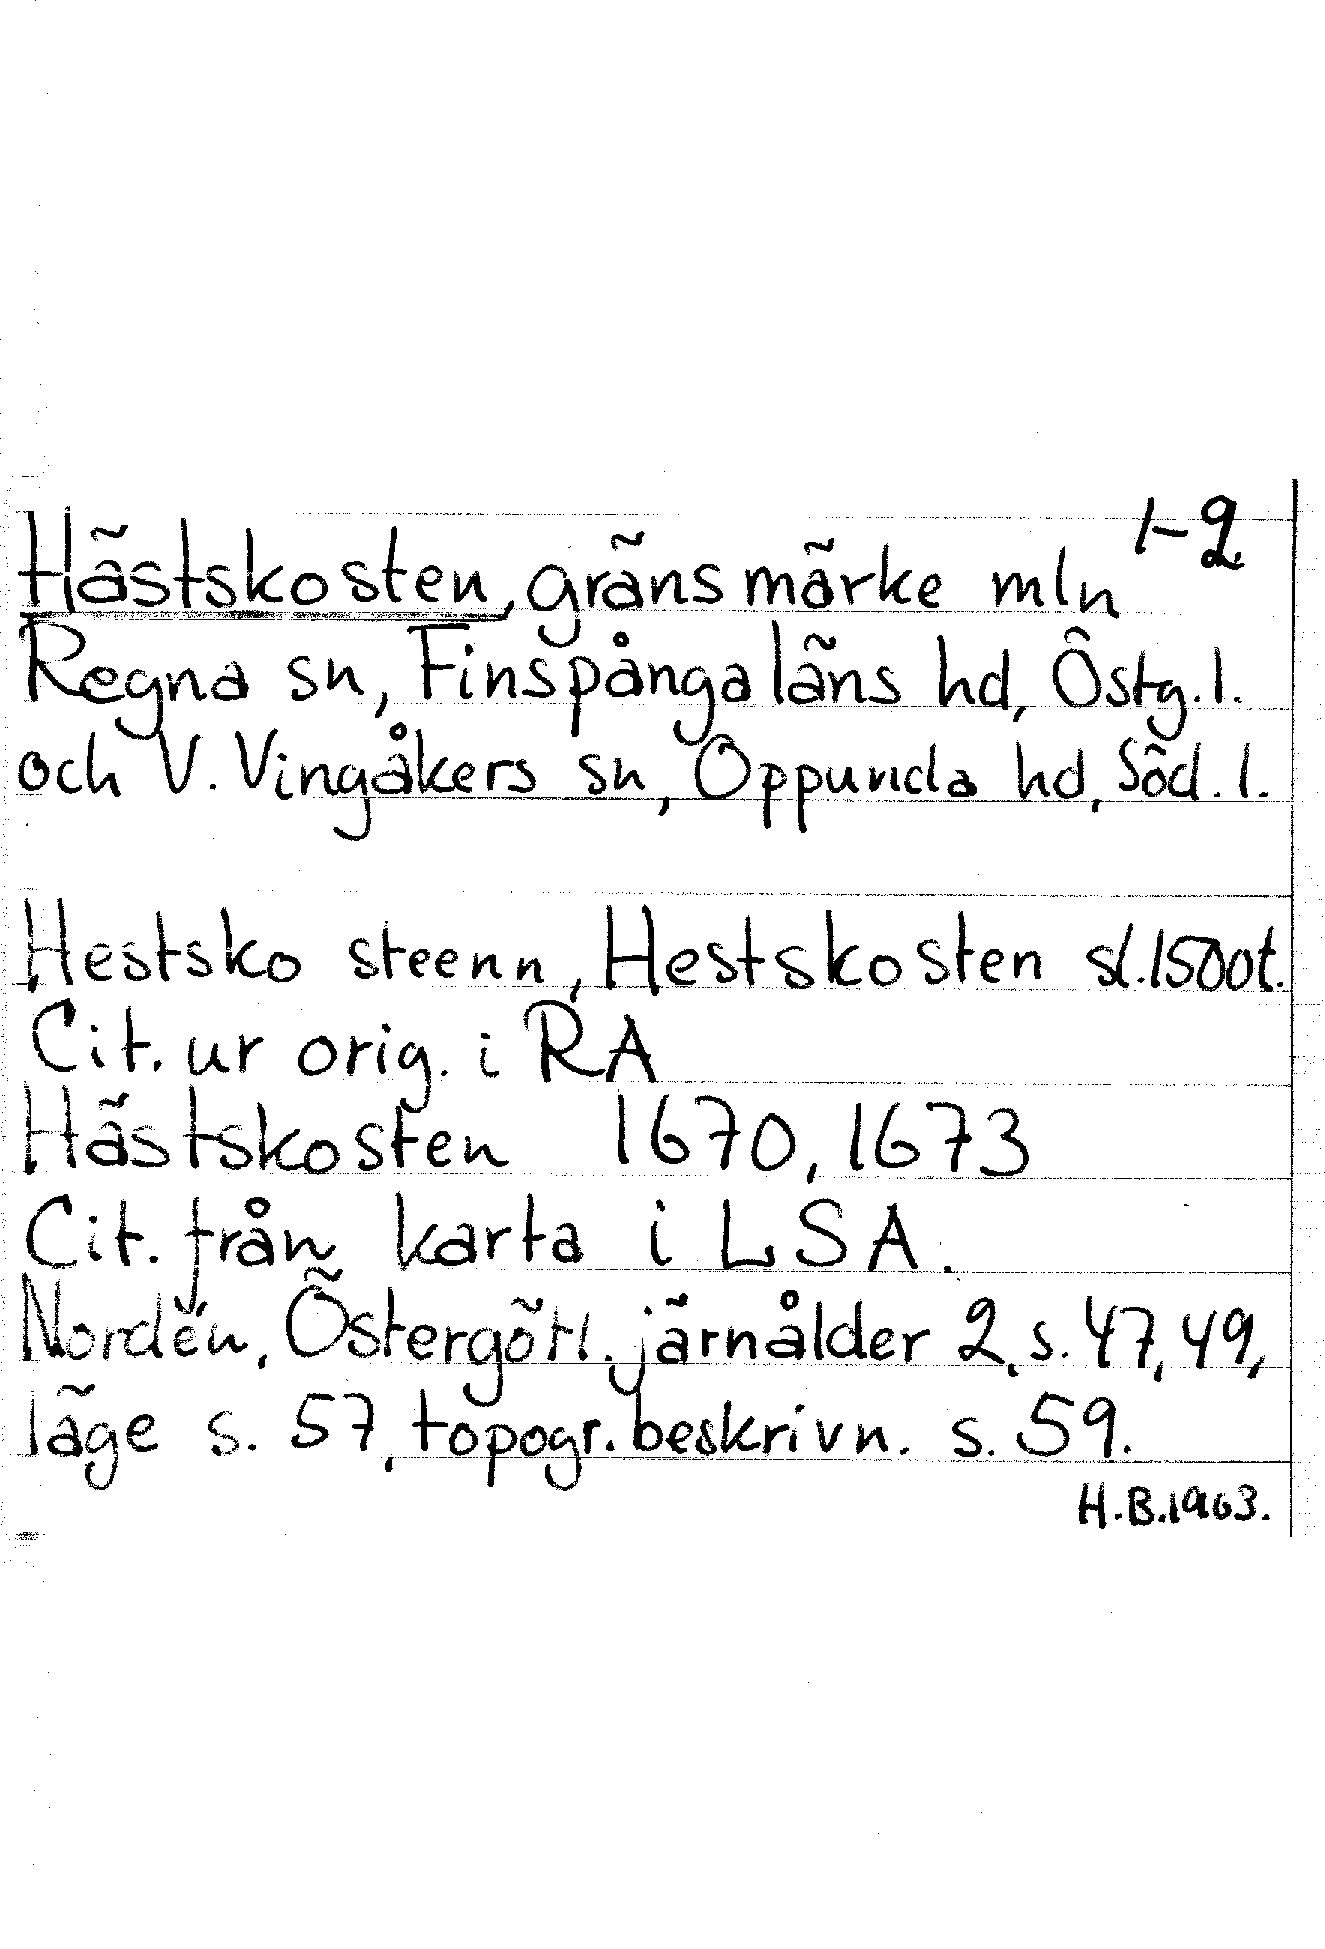 1-2
Hästskosten, gränsmärke mln
Regna sn, Finspånga läns hd, Östg. l.
och V. Vingåkers sn, Oppunda hd, Söd. l.
Hestsko steenn, Hestskosten sl. 1500t.
Cit. ur orig. i RA
Hästskosten 1670, 1673
Cit. från karta i LSA.
Nordén, Östergötl. järnålder 2, s. 47, 49,
läge s. 57, topogr. beskrivn. s. 59.
H.B. 1963.